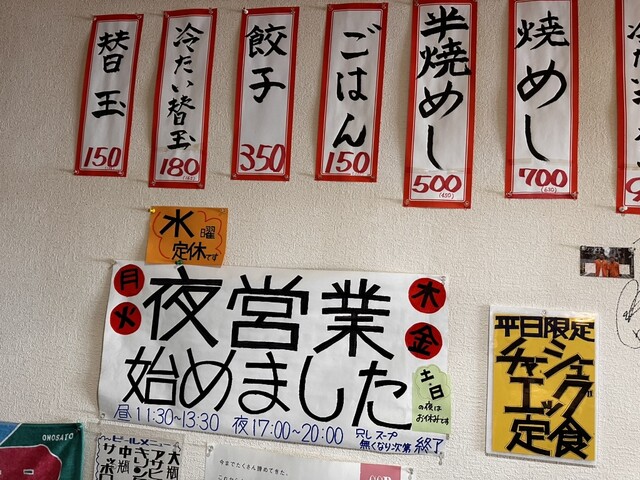 替玉
150
冷たい替玉
180
餃子
350
ごはん
150
半焼めし
500
(450)
焼めし
700
(630)
水曜
定休です
月
火
木
金
夜営業
始めました
土日
の夜は
お休みです
昼11:30~13:30 夜17:00~20:00
只しスープ
無くなり次第終了
平日限定
チャーシュー
エッグ
定食
ONOSATO
ビールメニュー
大瓶
中瓶
アサヒ
キリン
サッポロ
今までたくさん諦めてきた。